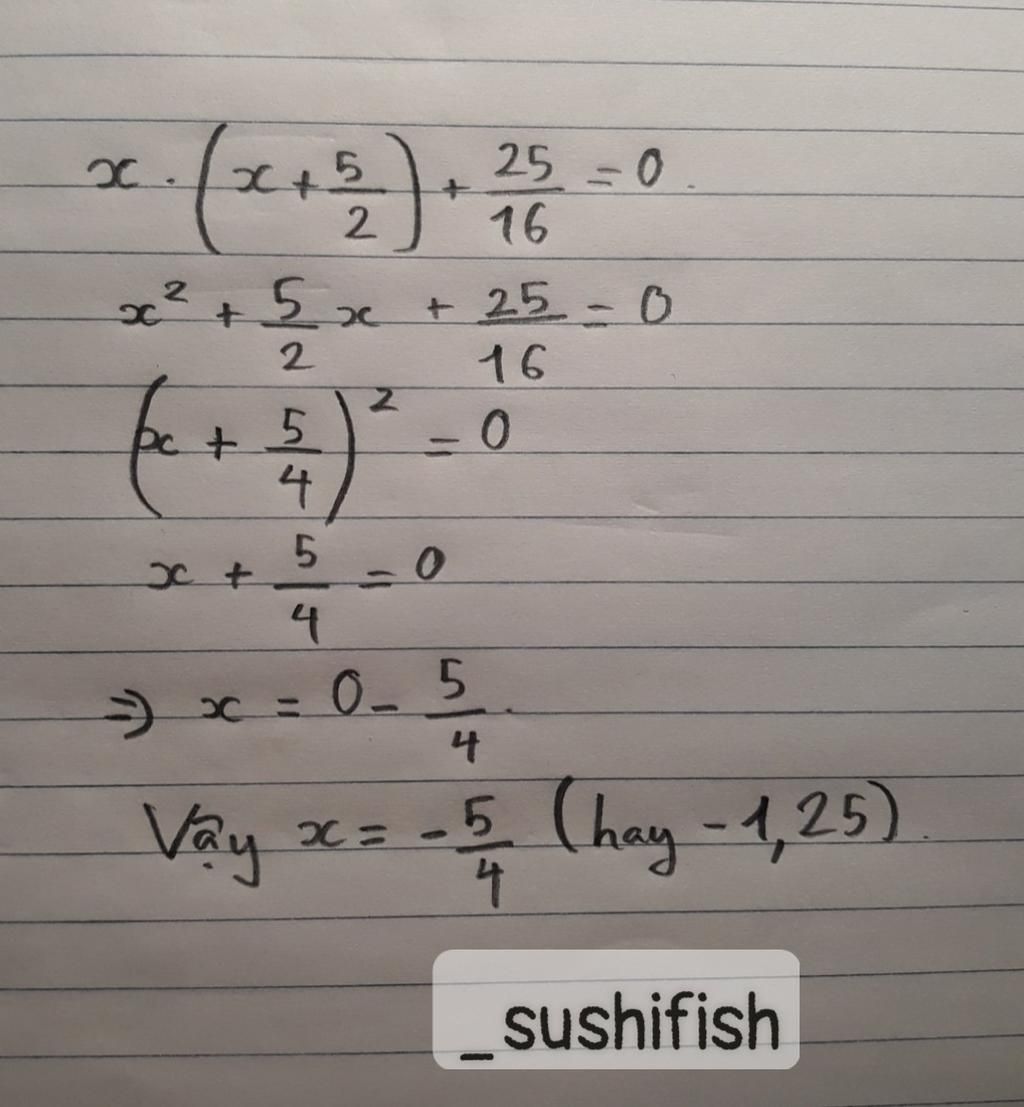 x . (x + 5/2) + 25/16 = 0.
x² + 5/2 x + 25/16 = 0
(x + 5/4)² = 0
x + 5/4 = 0
⇒ x = 0 - 5/4.
Vậy x = - 5/4 (hay - 1,25).
_sushifish